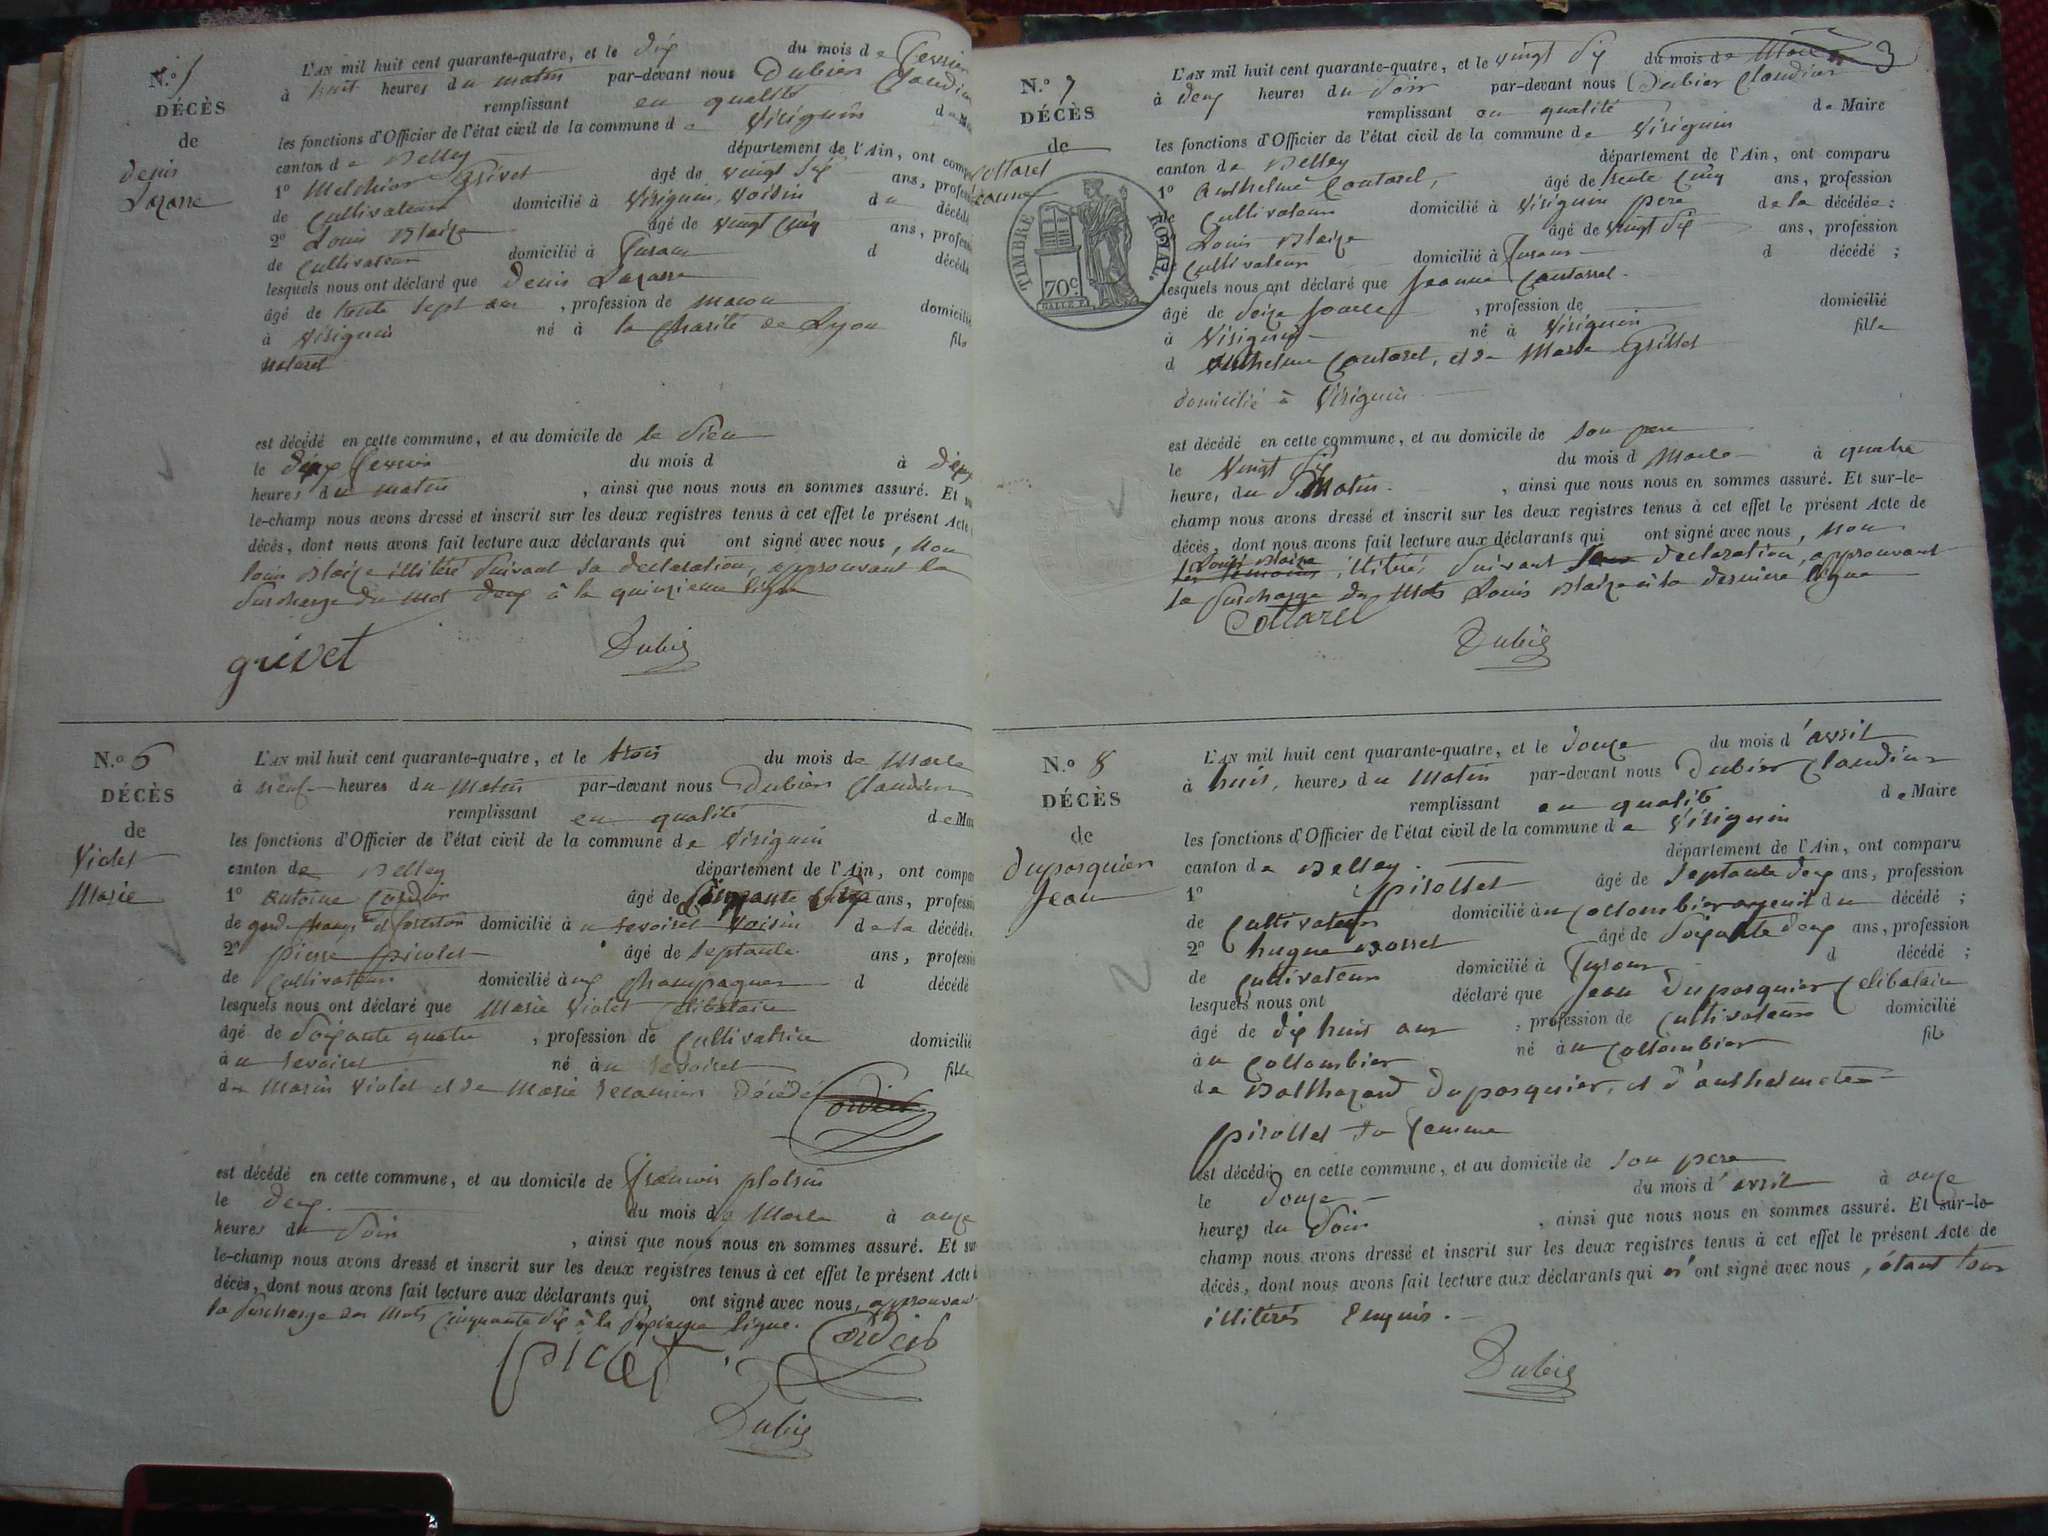 N.º 5
DÉCÈS
de
denis
Lazare
L'AN mil huit cent quarante-quatre, et le dix du mois de fevrier
à huit heures du matin par-devant nous Dubier Claudius
remplissant en qualité de Ma
les fonctions d'Officier de l'état civil de la commune de Virignin
canton de Belley département de l'Ain, ont comp
1º Melchior Grivet âgé de vingt six ans, profes
de Cultivateur domicilié à Virignin, Voisin du décédé
2º Louis Blaize âgé de vingt cinq ans, profes
de Cultivateur domicilié à d décédé
lesquels nous ont déclaré que denis Lazare
âgé de trente sept ans, profession de macon domicilié
à Virignin né à la Charité de Lyon fils
naturel
est décédé en cette commune, et au domicile de le sien
le dix fevrier du mois d à deux
heures du matin, ainsi que nous nous en sommes assuré. Et su
le-champ nous avons dressé et inscrit sur les deux registres tenus à cet effet le présent Acte
décès, dont nous avons fait lecture aux déclarants qui ont signé avec nous, non
louis Blaize illiteré suivant sa declaration, approuvant la
surcharge du mot deux à la quinzieme ligne
grivet Dubier
N.º 6
DÉCÈS
de
Violet
Marie
L'AN mil huit cent quarante-quatre, et le trois du mois de Mars
à neuf heures du Matin par-devant nous Dubier Claudius
remplissant en qualité de Ma
les fonctions d'Officier de l'état civil de la commune de Virignin
canton de Belley département de l'Ain, ont compa
1º Antoine Cordier âgé de Cinquante Six ans, profess
de domicilié à Voisin de la décédée
2º pierre picolet âgé de septante ans, profess
de Cultivateur domicilié à d décédé
lesquels nous ont déclaré que Marie Violet Célibataire
âgé de Soixante quatre, profession de Cultivatrice domicilié
à né à fille
de Marin Violet et de Marie Recamier décédé Cordier
est décédé en cette commune, et au domicile de francois
le deux du mois de Mars à onze
heures du Soir, ainsi que nous nous en sommes assuré. Et su
le-champ nous avons dressé et inscrit sur les deux registres tenus à cet effet le présent Acte
décès, dont nous avons fait lecture aux déclarants qui ont signé avec nous, approuvant
la surcharge des mots Cinquante six à la sixieme ligne.
Cordier
Dubier
3
N.º 7
DÉCÈS
de
Cottarel
Jeanne
TIMBRE ROYAL.
70c
L'AN mil huit cent quarante-quatre, et le vingt six du mois de Mars
à deux heures du Soir par-devant nous Dubier Claudius
remplissant en qualité de Maire
les fonctions d'Officier de l'état civil de la commune de Virignin
canton de Belley département de l'Ain, ont comparu
1º Anthelme Coutarel, âgé de trente cinq ans, profession
de Cultivateur domicilié à Virignin pere de la décédée;
2º Louis Blaize âgé de vingt six ans, profession
de Cultivateur domicilié à d décédé;
lesquels nous ont déclaré que Jeanne Coutarel
âgé de Seize jours, profession de domicilié
à Virignin né à Virignin fille
d Anthelme Coutarel, et de Marie Grillet
domicilié à Virignin
est décédé en cette commune, et au domicile de son pere
le Vingt six du mois d Mars à quatre
heures du Matin, ainsi que nous nous en sommes assuré. Et sur-le-
champ nous avons dressé et inscrit sur les deux registres tenus à cet effet le présent Acte de
décès, dont nous avons fait lecture aux déclarants qui ont signé avec nous, non
Louis Blaize
les temoins illiteré, Suivant sa declaration, approuvant
la surcharge des mots Louis Blaize à la derniere ligne
Cottarel
Dubier
N.º 8
DÉCÈS
de
Dupasquier
Jean
L'AN mil huit cent quarante-quatre, et le douze du mois d'avril
à huit, heures du Matin par-devant nous Dubier Claudius
remplissant en qualité de Maire
les fonctions d'Officier de l'état civil de la commune de Virignin
canton de Belley. département de l'Ain, ont comparu
1º pirollet âgé de Septante deux ans, profession
de Cultivateur domicilié à décédé;
2º hugue âgé de Soixante deux ans, profession
de Cultivateur domicilié à d décédé;
lesquels nous ont déclaré que Jean Dupasquier Célibataire
âgé de dix huit ans, profession de Cultivateur domicilié
à u Collombier né à u Collombier fils
de Balthazard Dupasquier, et d'anthelmete
pirollet sa femme
est décédé en cette commune, et au domicile de son pere
le douze du mois d'avril à onze
heures du Soir, ainsi que nous nous en sommes assuré. Et sur-le-
champ nous avons dressé et inscrit sur les deux registres tenus à cet effet le présent Acte de
décès, dont nous avons fait lecture aux déclarants qui n'ont signé avec nous, étant tous
illiterés Enquis.
Dubier